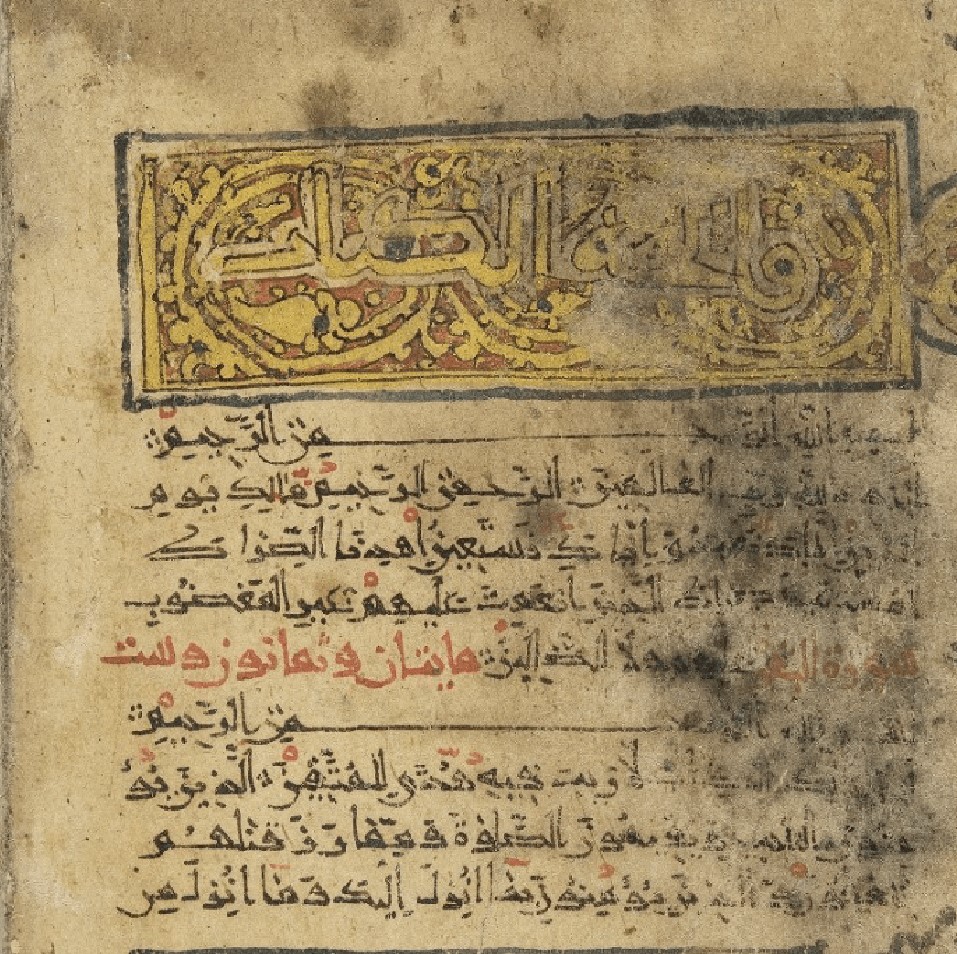 فاتحة الكتاب
بسم الله الرحمن الرحيم
الحمد لله رب العالمين الرحمن الرحيم مالك يوم
الدين اياك نعبد واياك نستعين اهدنا الصراط
المستقيم صراط الذين انعمت عليهم غير المغضوب
سورة البقرة عليهم ولا الضالين مايتان وثمانون وست
بسم الله الرحمن الرحيم
الم ذلك الكتاب لا ريب فيه هدى للمتقين الذين يؤ
منون بالغيب ويقيمون الصلوة ومما رزقنهم
ينفقون والذين يؤمنون بما انزل اليك وما انزل من